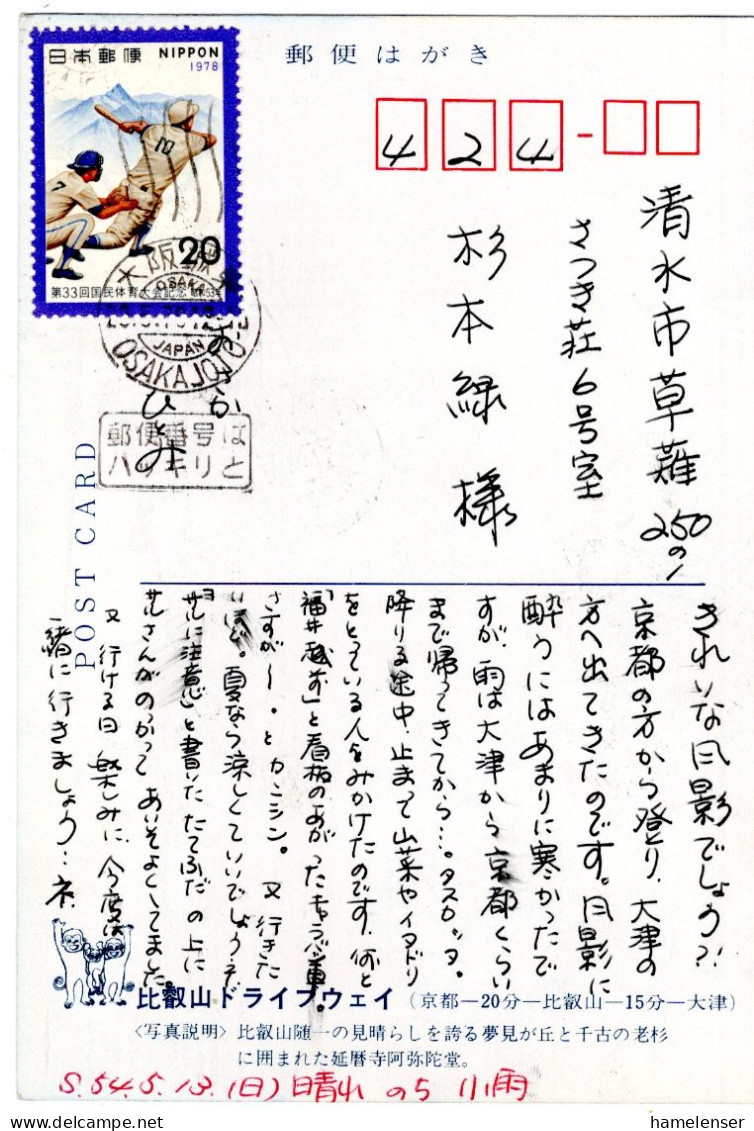 日本郵便 NIPPON
1978
20
第33回国民体育大会記念 昭和53年
郵便はがき
424-
清水市草薙250の1
さつき荘6号室
杉本緑様
大阪城東
OSAKA
JAPAN
OSAKAJOTO
ひとみ
郵便番号は
ハッキリと
POST CARD
きれいな風景でしょう?!
京都の方から登り、大津の
方へ出てきたのです。風景に
酔うにはあまりに寒かったで
すが、雨は大津から京都くらい
まで帰ってきてから…。タスカッタ。
降りる途中、止まって山菜やイタドリ
をとっている人をみかけたのです、何と
「福井越前」と看板のあがったキャラバン車。
さすがー。とカンシン。又行きた
いほど。夏なら涼しくていいでしょうネ
サルに注意」と書いたたてふだの上に
サルさんがのっかってあいそよくしてました。
又行ける日楽しみに、今度は
一緒に行きましょう…ネ
比叡山ドライブウェイ(京都―20分―比叡山―15分―大津)
〈写真説明〉比叡山随一の見晴らしを誇る夢見が丘と千古の老杉
に囲まれた延暦寺阿弥陀堂。
S.54.5.13.(日)晴れ のち 小雨
hamelenser